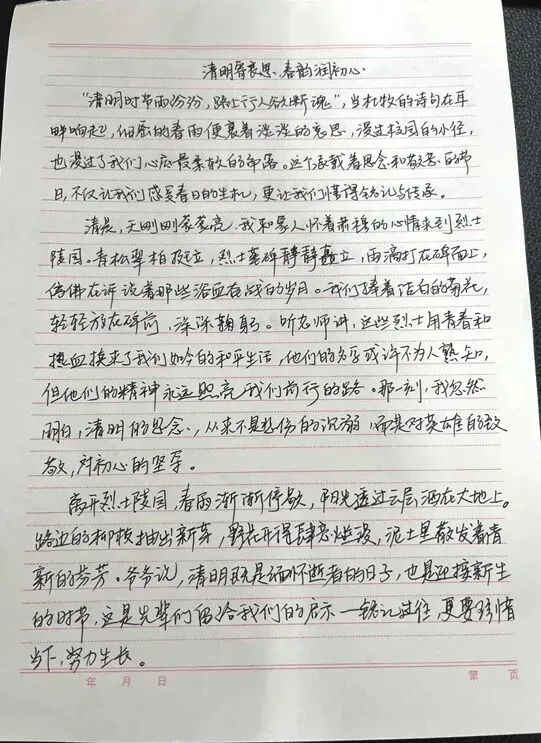 清明寄哀思，春韵润初心
“清明时节雨纷纷，路上行人欲断魂”，当杜牧的诗句在耳
畔响起，细密的春雨便裹着淡淡的哀思，漫过校园的小径，
也漫过了我们心底最柔软的角落。这个承载着思念和敬意的节
日，不仅让我们感受春日的生机，更让我们懂得铭记与传承。
清晨，天刚刚蒙蒙亮，我和家人怀着肃穆的心情来到烈士
陵园。青松翠柏挺立，烈士墓碑静静矗立，雨滴打在碑面上，
仿佛在诉说着那些浴血奋战的岁月。我们捧着洁白的菊花，
轻轻放在碑前，深深鞠躬。听老师讲，这些烈士用青春和
热血换来了我们如今的和平生活，他们的名字或许不为人熟知，
但他们的精神永远照亮我们前行的路。那一刻，我忽然
明白，清明的思念，从来不是悲伤的沉溺，而是对英雄的致
敬，对初心的坚守。
离开烈士陵园，春雨渐渐停歇，阳光透过云层洒在大地上。
路边的柳枝抽出新芽，野花开得肆意烂漫，泥土里散发着清
新的芬芳。爷爷说，清明既是缅怀逝者的日子，也是迎接新生
的时节，这是先辈们留给我们的启示—铭记过往 更要珍惜
当下，努力生长。
年 月 日 第 页